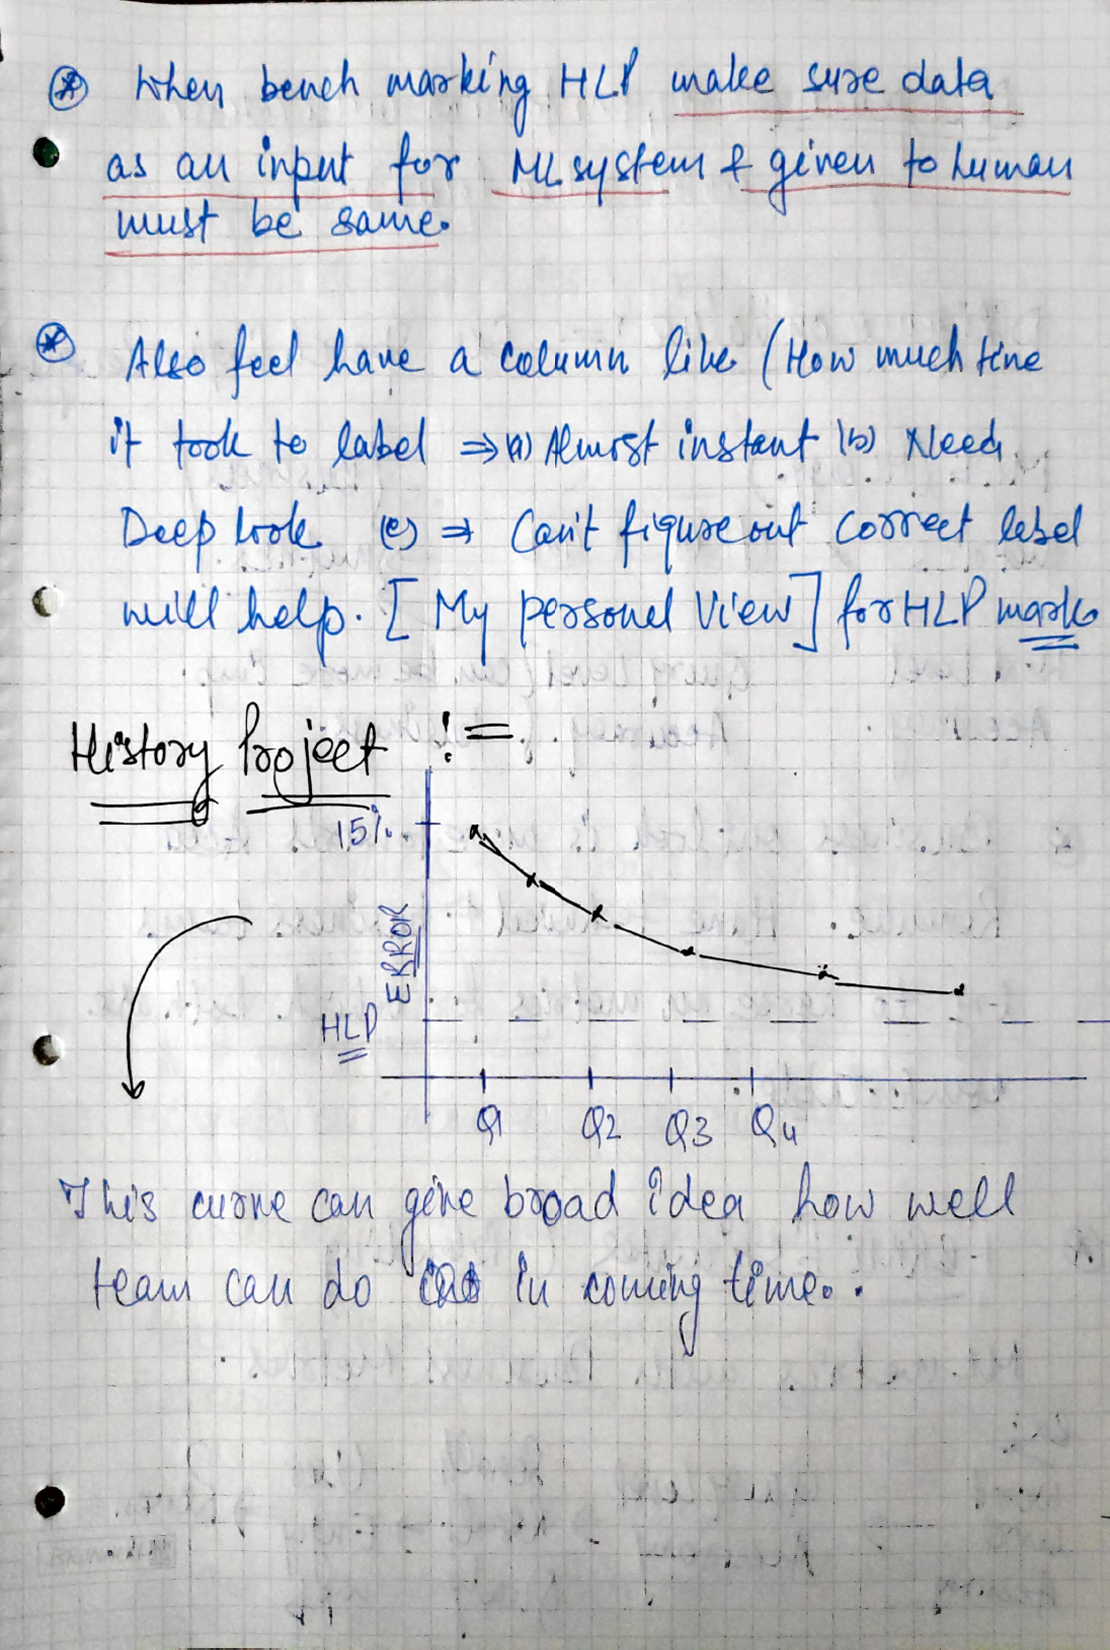 ⊛ When bench marking HLP make sure data
as an input for ML system & given to human
must be same.
⊛ Also feel have a column like (How much time
it took to label ⇒ (a) Almost instant (b) Need
Deep look (c) ⇒ Can't figure out correct label
will help. [My personal View] for HLP mark
History Project :=
15%
ERROR
HLP
Q1 Q2 Q3 Q4
This curve can give broad idea how well
team can do in coming time..